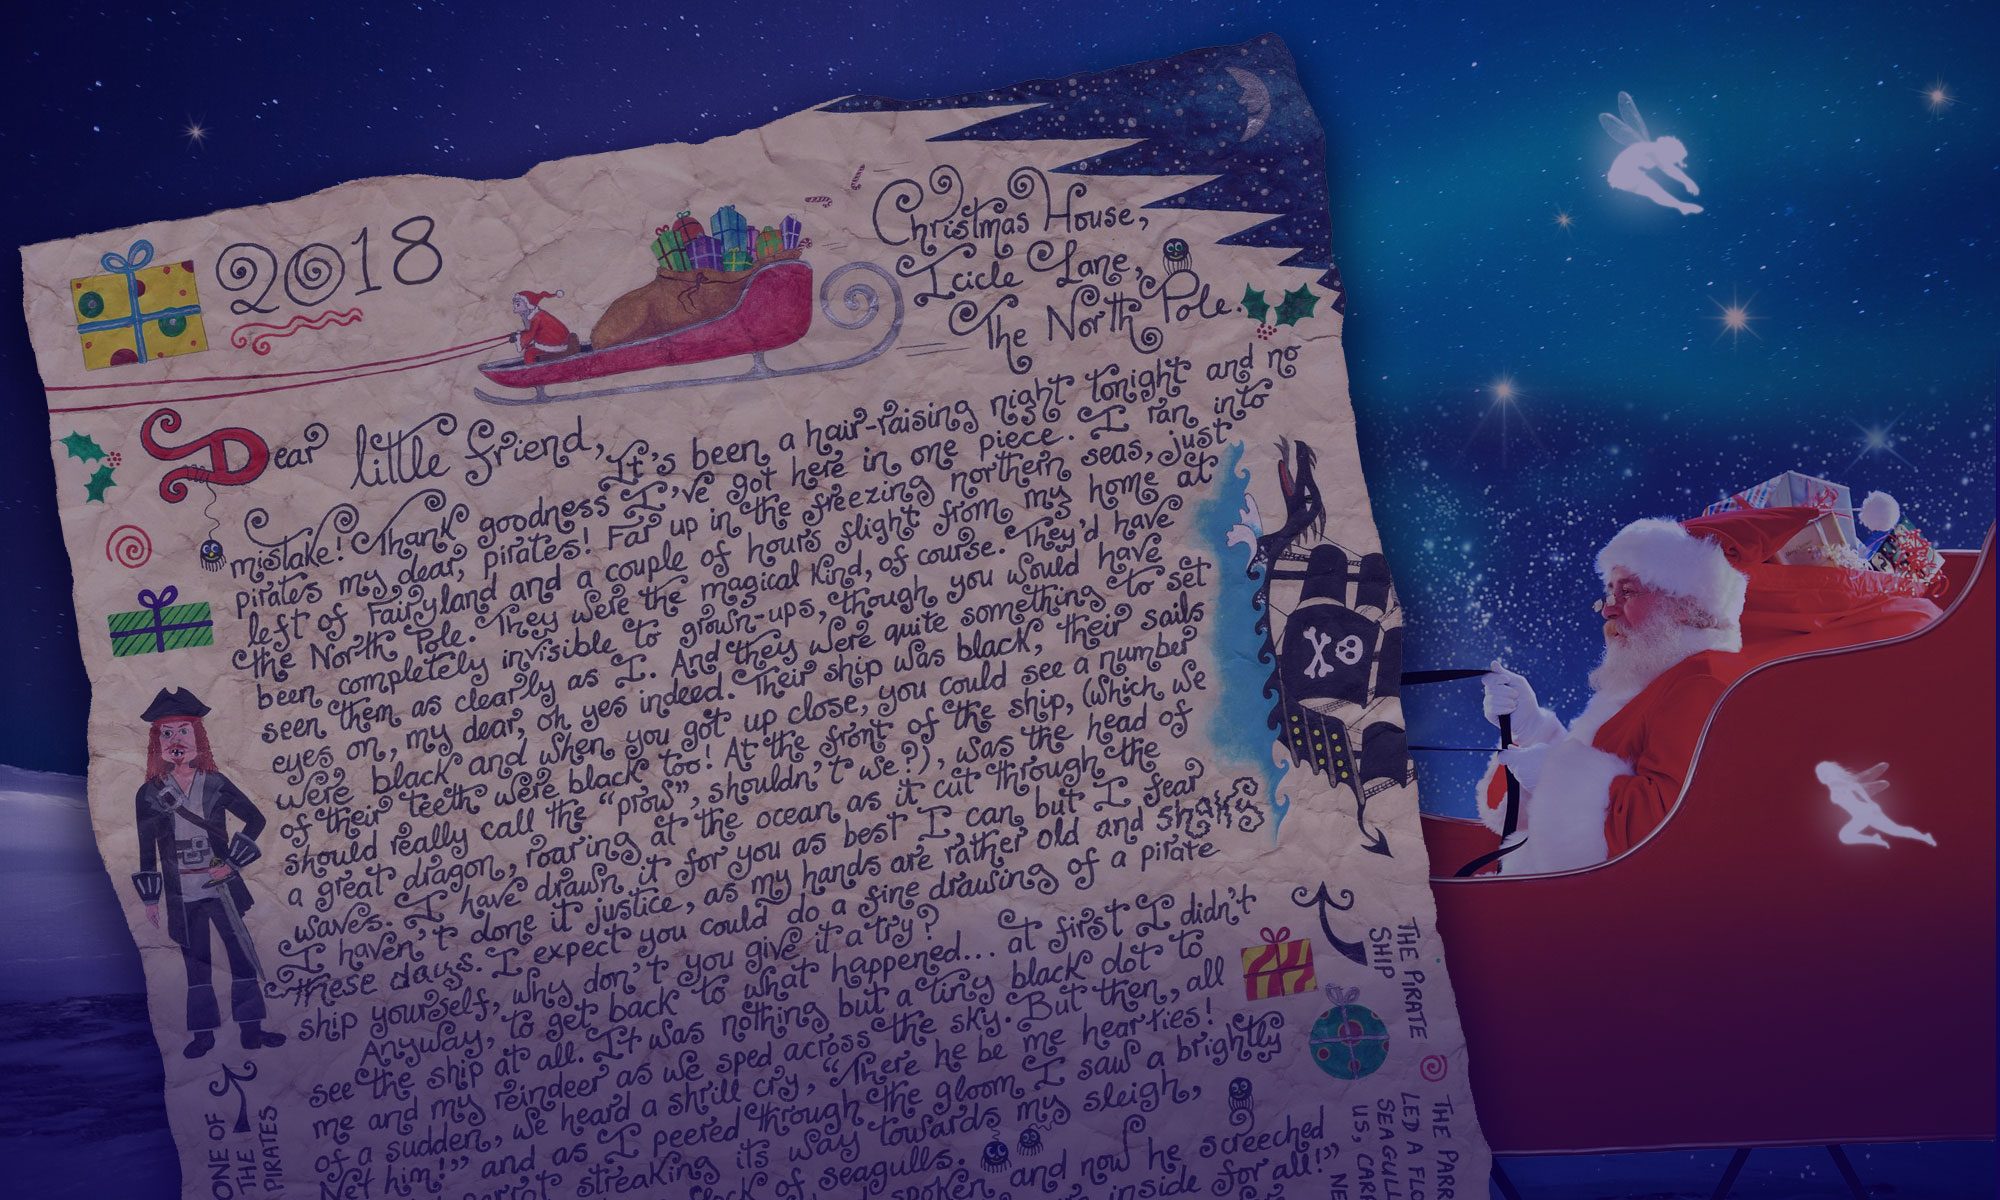 2018
Christmas House,
Icicle Lane,
The North Pole.
Dear little friend, It's been a hair-raising night tonight and no
mistake! Thank goodness I've got here in one piece. I ran into
pirates my dear, pirates! Far up in the freezing northern seas, just
left of Fairyland and a couple of hours flight from my home at
the North Pole. They were the magical kind, of course. They'd have
been completely invisible to grown-ups, though you would have
seen them as clearly as I. And they were quite something to set
eyes on, my dear, oh yes indeed. Their ship was black, their sails
were black and when you got up close, you could see a number
of their teeth were black too! At the front of the ship, (which we
should really call the "prow", shouldn't we?), was the head of
a great dragon, roaring at the ocean as it cut through the
waves. I have drawn it for you as best I can but I fear
I haven't done it justice, as my hands are rather old and shaky
these days. I expect you could do a fine drawing of a pirate
ship yourself, why don't you give it a try?
Anyway, to get back to what happened... at first I didn't
see the ship at all. It was nothing but a tiny black dot to
me and my reindeer as we sped across the sky. But then, all
of a sudden, we heard a shrill cry, "There he be me hearties!
Net him!" and as I peered through the gloom I saw a brightly
parrot streaking its way towards my sleigh,
flock of seagulls.
spoken and now he screeched
inside for all!"
ONE OF
THE
PIRATES
THE PIRATE
SHIP
THE PARR
LED A FLO
SEAGULL
US, CARR
NE